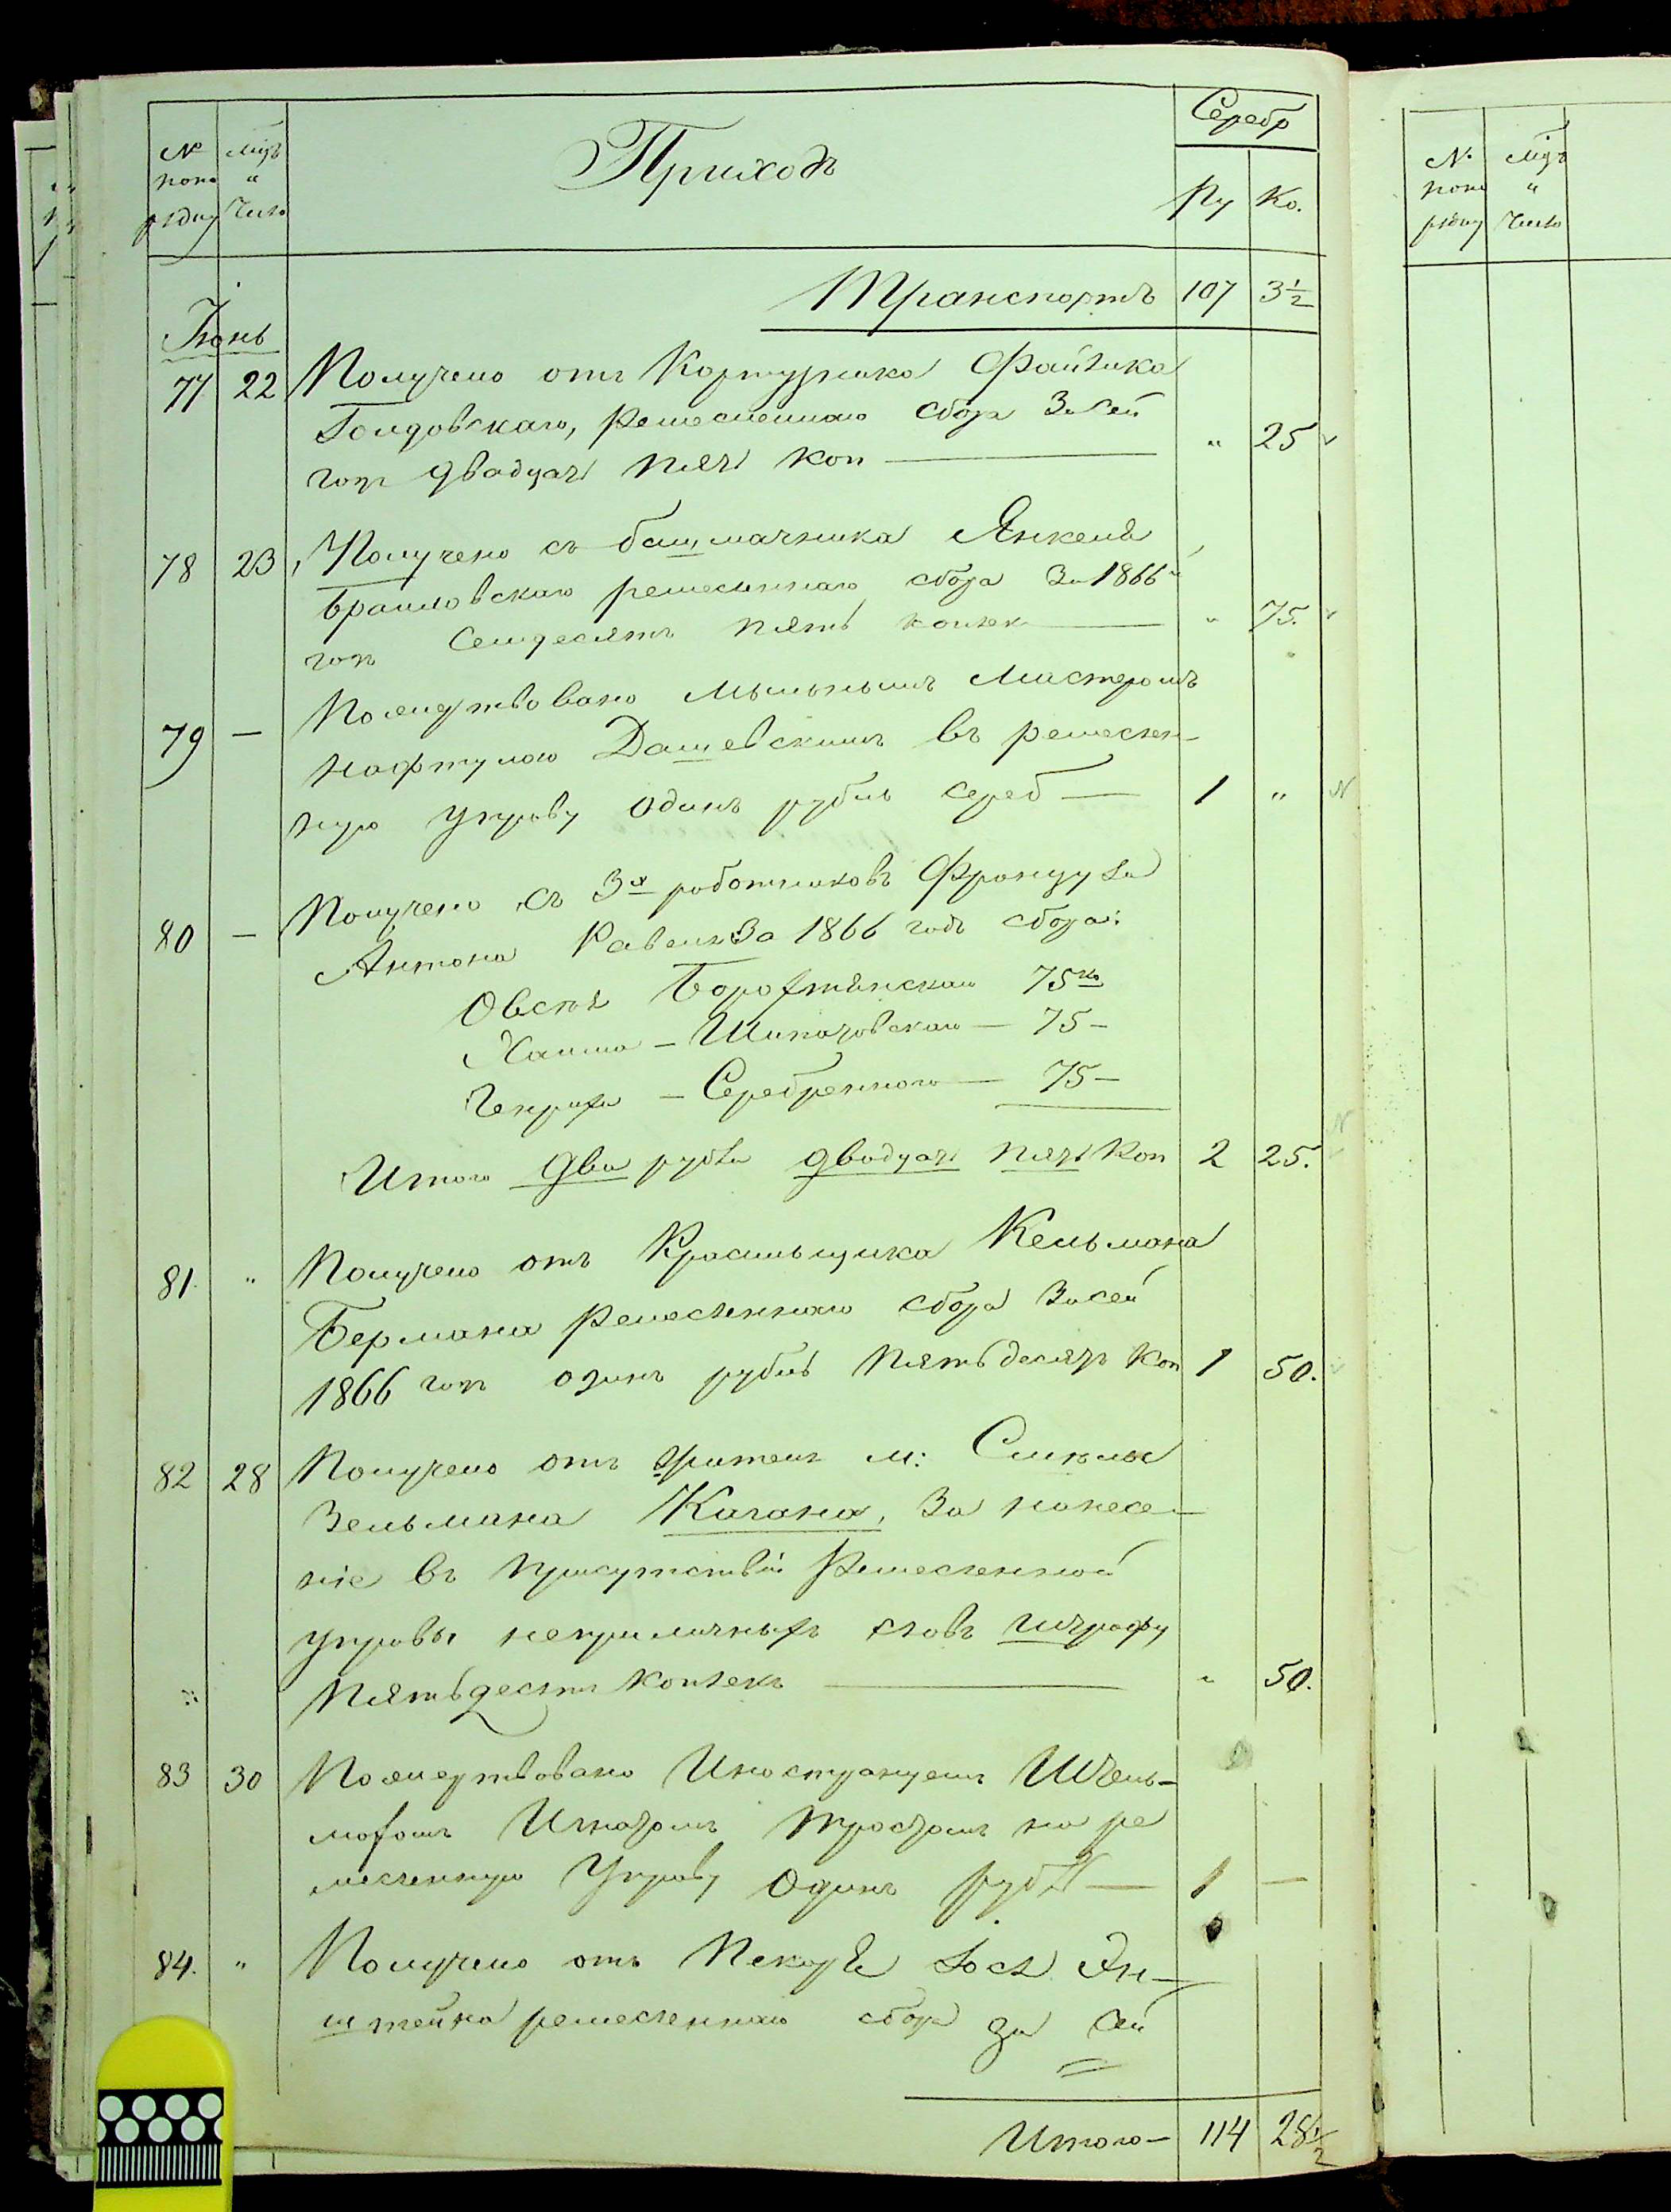 № поре рядку
Мцъ " Число
Приходъ
Серебр
Ру Ко.
Транспортъ 107 3½
Іюнь
77 22 Получено отъ Картузника Файвика
Голдовскаго, ремесленнаго сбора За сей
годъ двадцать пять коп — " 25
78 23 Получено съ башмачника Янкеля
Браиловскаго ремесленнаго сбора За 1866й
годъ Семдесятъ пять копѣек — " 75.
79 — Пожертвовано Мыльнымъ Мастеромъ
Нафтулою Дашевскимъ въ ремеслен-
ную управу одинъ рубль сереб — 1 "
80 — Получено съ 3х работниковъ Француза
Антона За 1866 годъ сбора:
Овсѣя Бородянскаго 75 ко
Хаима — — 75 —
— Серебреннаго — 75 —
Итого два рубля двадцать пять коп 2 25.
81. " Получено отъ Красильщика Кельмана
Бермана Ремесленнаго сбора За сей
1866 годъ одинъ рубль Пятьдесятъ Коп 1 50.
82 28 Получено отъ жителя м: Смелы
Зельмана Кагана, За нанесе-
ніе въ присутствіи Ремесленной
управы неприличныхъ словъ штрафу
Пятьдесятъ копѣекъ — " 50.
83 30 Пожертвовано Иностранцемъ
на ре
месленную Управу Одинъ рубль — 1 —
84. " Получено отъ Пекаря Іося Эн-
штейна ремесленнаго сбора за сей
Итого — 114 28½
№ поре рядку
Мцъ " Число